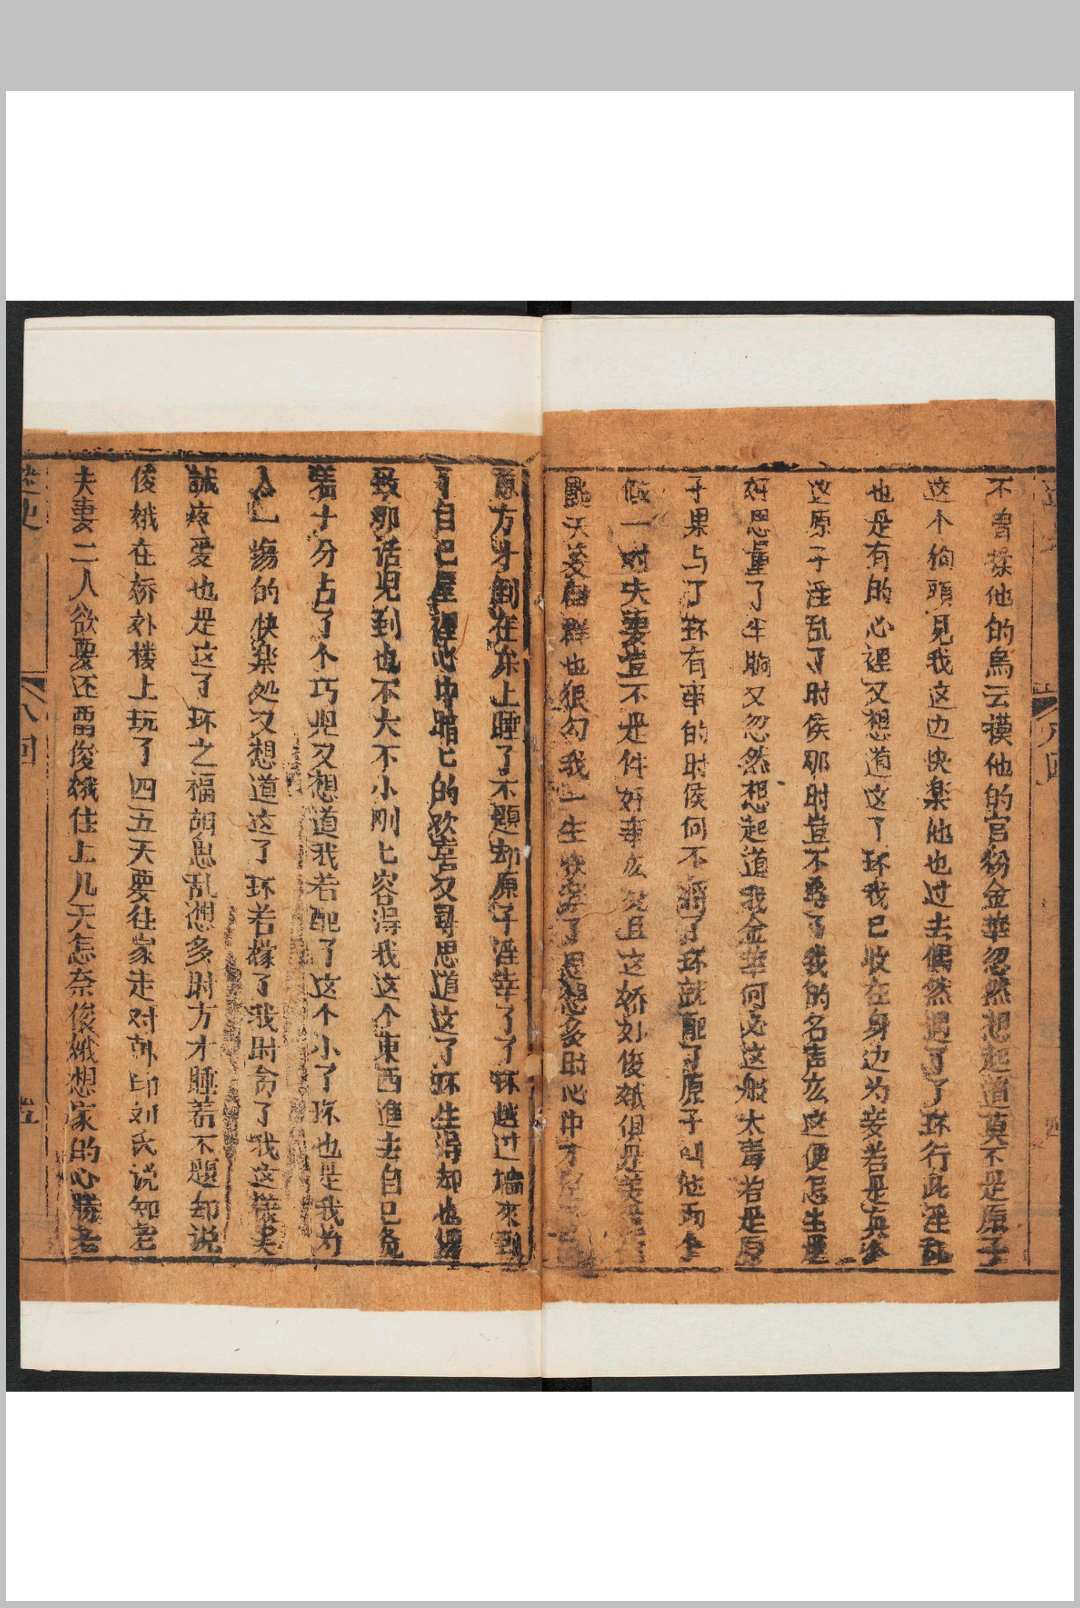 不曾搽他的烏云模他的官粉金華忽然想起道莫不是原子
这个狗頭見我这边快楽他也过去偶然遇了了环行此淫乱
也是有的心裡又想道这了环我已收在身边为妾若是真
原子淫乱了时侯那时豈不辱了我的名声厷这便怎生是
好思量了半晌又忽然想起道我金華何必这般大毒若是原
子果与了环有事的时侯何不將了环就配了原子叫他两个
做一对夫妻豈不是件好事厷况且这娇刘俊娥俱是
天姿超群也狠勾我一生快楽了思想多时心中才
原方才倒在床上睡了不題却原子淫幸了了环越过墙來到
了自己屋裡心中暗匕的欢喜又尋思道这了环生淂却也
致那话児到也不大不小刚匕容淂我这个東西進去自己
十分占了个巧児又想道我若配了这个小了环也是我为
人一塲的快楽処又想道这了环若嫁了我时贪了我这様
誠疼爱也是这了环之福胡思乱想多时方才睡着不題却说
俊娥在娇外楼上玩了四五天要往家走对刘氏说知老
夫妻二人欲要还畱俊娥住上几天怎奈俊娥想家的心勝老
八回